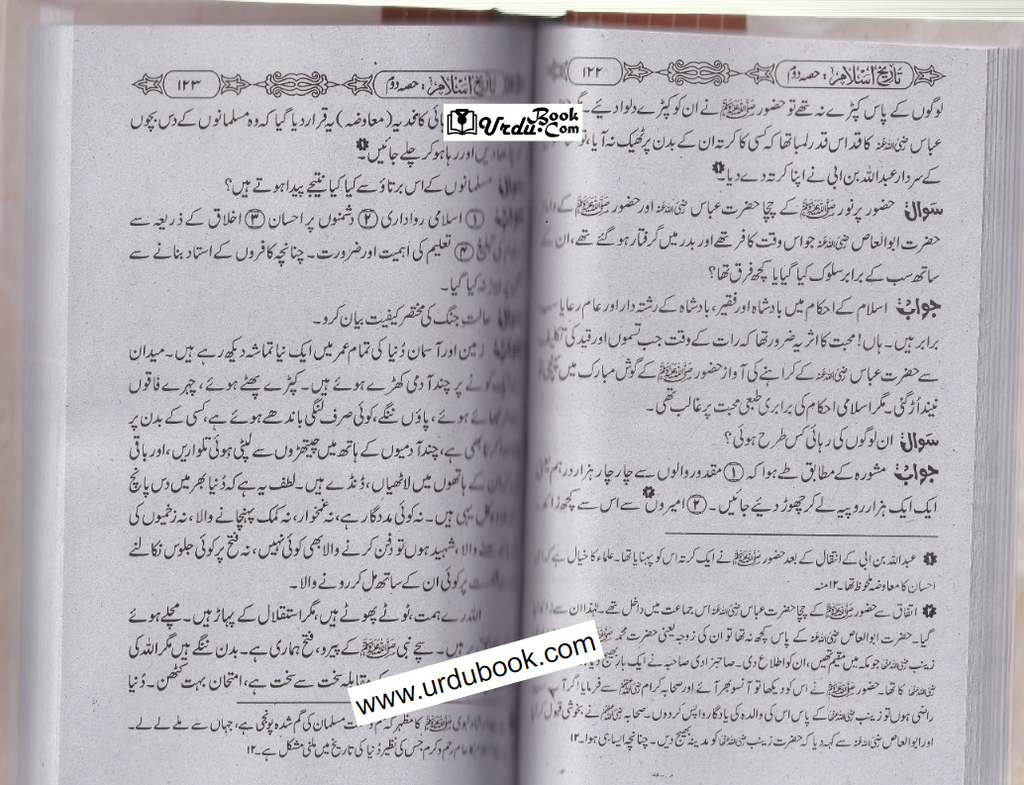 تاریخ اسلام: حصہ دوم
۱۲۲
لوگوں کے پاس کپڑے نہ تھے تو حضور ﷺ نے ان کو کپڑے دلوا دئیے۔
عباس رضی اللہ عنہ کا قد اس قدر لمبا تھا کہ کسی کا کرتہ ان کے بدن پر ٹھیک نہ آیا،
کے سردار عبداللہ بن ابی نے اپنا کرتہ دے دیا۔ ①
سوال: حضور پرنور ﷺ کے چچا حضرت عباس رضی اللہ عنہ اور حضور ﷺ کے
حضرت ابوالعاص رضی اللہ عنہ جو اس وقت کافر تھے اور بدر میں گرفتار ہو گئے تھے، ان کے
ساتھ سب کے برابر سلوک کیا گیا یا کچھ فرق تھا؟
جواب: اسلام کے احکام میں بادشاہ اور فقیر، بادشاہ کے رشتہ دار اور عام رعایا سب
برابر ہیں۔ ہاں! محبت کا اثر یہ ضرور تھا کہ رات کے وقت جب تسموں اور قید کی تکلیف
سے حضرت عباس رضی اللہ عنہ کے کراہنے کی آواز حضور ﷺ کے گوش مبارک میں پہنچی تو
نیند اُڑ گئی۔ مگر اسلامی احکام کی برابری طبعی محبت پر غالب تھی۔
سوال: ان لوگوں کی رہائی کس طرح ہوئی؟
جواب: مشورہ کے مطابق طے ہوا کہ ① مقدور والوں سے چار چار ہزار درہم یعنی
ایک ایک ہزار روپیہ لے کر چھوڑ دیئے جائیں۔ ② امیروں ② سے اس سے کچھ زائد
① عبداللہ بن ابی کے انتقال کے بعد حضور ﷺ نے ایک کرتہ اس کو پہنایا تھا۔ علماء کا خیال ہے کہ
احسان کا معاوضہ ملحوظ تھا۔ ۱۲ منہ
② اتفاق سے حضور ﷺ کے چچا حضرت عباس رضی اللہ عنہ اس جماعت میں داخل تھے۔ لہٰذا ان سے
گیا۔ حضرت ابوالعاص رضی اللہ عنہ کے پاس کچھ نہ تھا تو ان کی زوجہ یعنی حضرت محمد ﷺ
زینب رضی اللہ عنہا جو مکہ میں مقیم تھیں، ان کو اطلاع دی۔ صاحبزادی صاحبہ نے ایک ہار بھیج دیا
رضی اللہ عنہا کا تھا۔ حضور ﷺ نے اس کو دیکھا تو آنسو بھر آئے اور صحابہ کرام سے فرمایا: اگر آپ سب
راضی ہوں تو زینب رضی اللہ عنہا کے پاس اس کی والدہ کی یادگار واپس کر دوں۔ صحابہ نے بخوشی قبول کر لیا
اور ابوالعاص رضی اللہ عنہ سے کہہ دیا کہ حضرت زینب رضی اللہ عنہا کو مدینہ بھیج دیں۔ چنانچہ ایسا ہی ہوا۔ ۱۲
تاریخ اسلام: حصہ دوم
۱۲۳
کا فدیہ (معاوضہ) یہ قرار دیا گیا کہ وہ مسلمانوں کے دس بچوں
اور رہا ہو کر چلے جائیں۔ ①
سوال: مسلمانوں کے اس برتاؤ سے کیا کیا نتیجے پیدا ہوتے ہیں؟
① اسلامی رواداری ② دشمنوں پر احسان ③ اخلاق کے ذریعہ سے
کی تبلیغ ④ تعلیم کی اہمیت اور ضرورت۔ چنانچہ کافروں کے استاد بنانے سے
نہ کیا گیا۔
حالتِ جنگ کی مختصر کیفیت بیان کرو۔
زمین اور آسمان دُنیا کی تمام عمر میں ایک نیا تماشہ دیکھ رہے ہیں۔ میدان
کونے پر چند آدمی کھڑے ہوئے ہیں۔ کپڑے پھٹے ہوئے، چہرے فاقوں
ہوئے، پاؤں ننگے، کوئی صرف لنگی باندھے ہوئے ہے، کسی کے بدن پر
بھی ہے، چند آدمیوں کے ہاتھ میں چیتھڑوں سے لپٹی ہوئی تلواریں، اور باقی
کے ہاتھوں میں لاٹھیاں، ڈنڈے ہیں۔ لطف یہ ہے کہ دُنیا بھر میں دس پانچ
کل یہی ہیں۔ نہ کوئی مددگار ہے، نہ غمخوار، نہ کمک پہنچانے والا، نہ زخمیوں کی
والا، شہید ہوں تو دفن کرنے والا بھی کوئی نہیں، نہ فتح پر کوئی جلوس نکالنے
پر کوئی ان کے ساتھ مل کر رونے والا۔
اللہ رے ہمت، ٹوٹے پھوٹے ہیں، مگر استقلال کے پہاڑ ہیں۔ مچلے ہوئے
ہیں۔ سچے نبی ﷺ کے پیرو، فتح ہماری ہے۔ بدن ننگے ہیں مگر اللہ کی
مقابلہ سخت سے سخت ہے، امتحان بہت کٹھن۔ دُنیا
ﷺ کا مظہر کہ مسلمان کی گم شدہ پونجی ہے، جہاں سے ملے لے لے۔
عام رحم و کرم، جس کی نظیر دُنیا کی تاریخ میں ملنی مشکل ہے۔ ۱۲
UrduBook.Com
www.urdubook.com